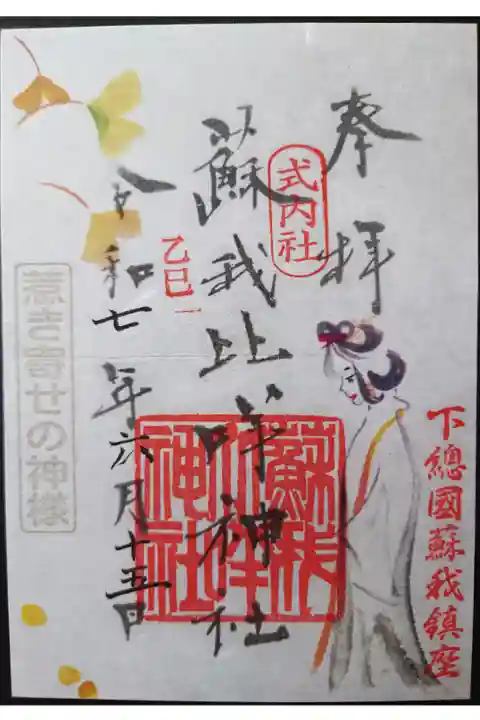 奉拝
式内社
下總國蘇我鎮座
蘇我比咩神社
蘇我比咩神社
乙巳一
令和七年六月十五日
惹き寄せの神様